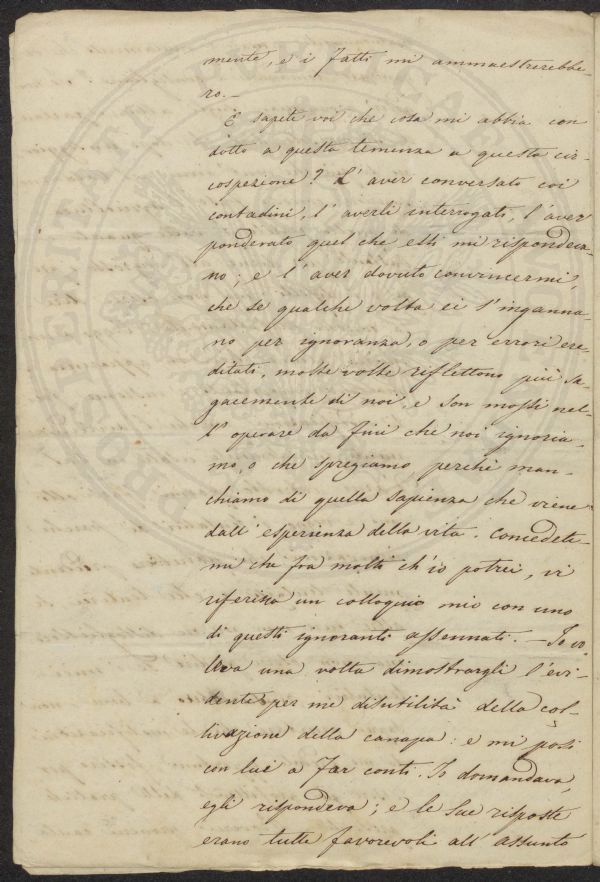 mente, e i fatti mi ammaestrerebbe-
ro.-
E sapete voi che cosa mi abbia con
dotto a questa temenza a questa cir-
cospezione? L'aver conversato coi
contadini, l'averli interrogati, l'aver
ponderato quel che essi mi rispondeva-
no; e l'aver dovuto convincermi,
che se qualche volta ei s'inganna-
no per ignoranza, o per errori ere-
ditati, molte volte riflettono più sa-
gacemente di noi, e son mossi nel-
l'operare da fini che noi ignoria-
mo, o che spregiamo perchè man-
chiamo di quella sapienza che viene
dall'esperienza della vita. Concedete-
mi che fra molti ch'io potrei, vi
riferisca un colloquio mio con uno
di questi ignoranti assennati. - Io vo-
leva una volta dimostrargli l'evi-
dente per me disutilità della col-
tivazione della canapa: e mi posi
con lui a far conti. Io domandava,
egli rispondeva; e le sue risposte
erano tutte favorevoli all'assunto